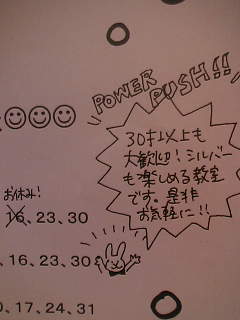 POWER PUSH!!
30才以上も
大歓迎！シルバー
も楽しめる教室
です。是非
お気軽に!!
お休み!
16、23、30
、16、23、30
0、17、24、31